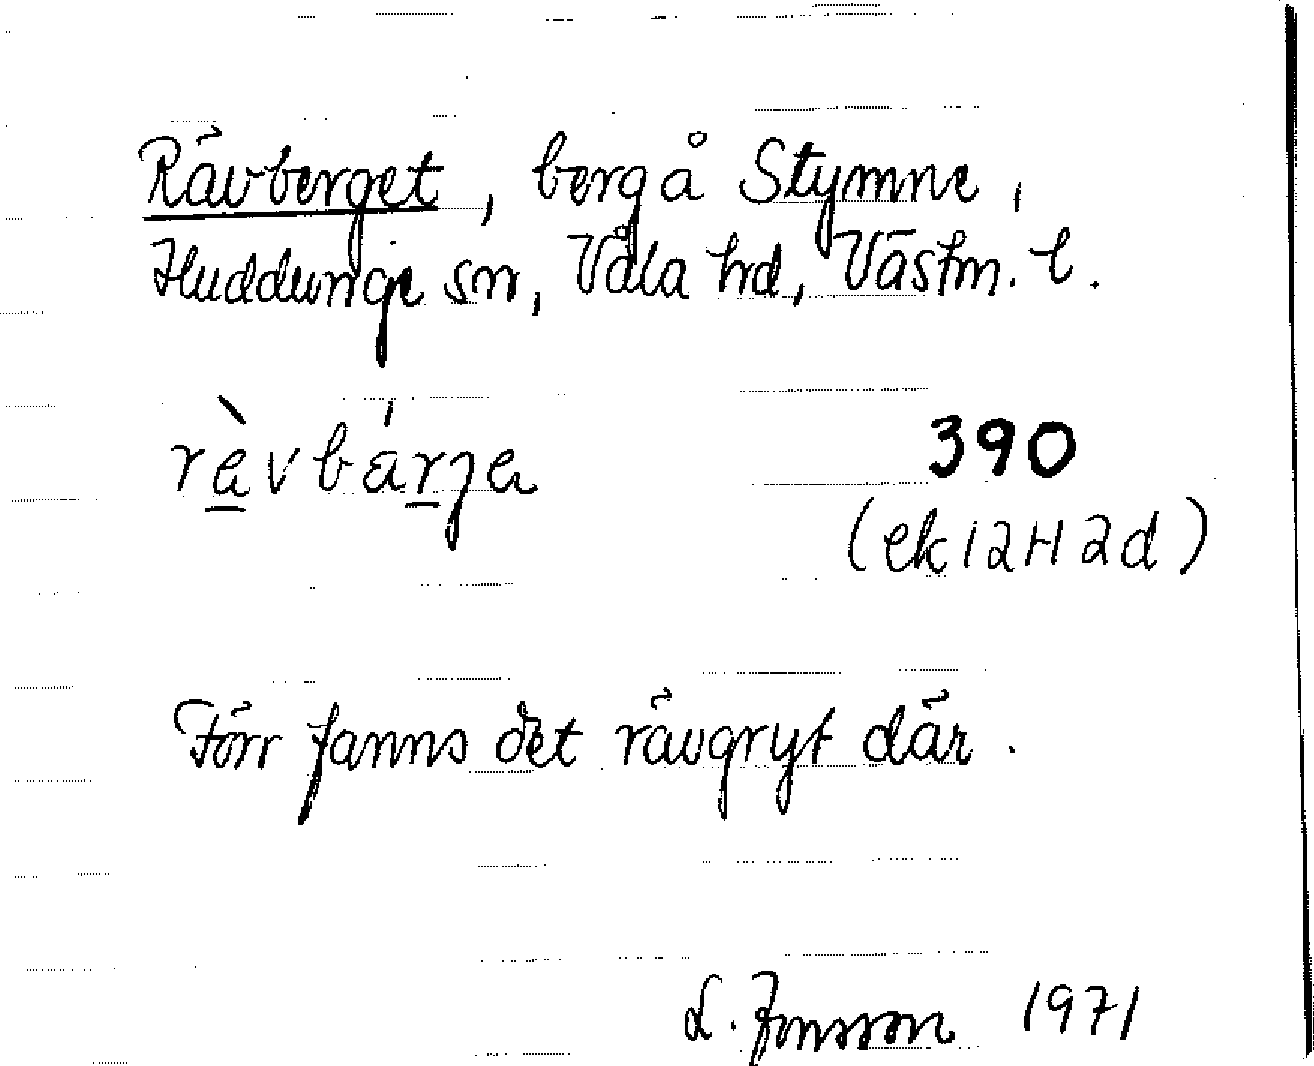 Rävberget, berg å Stymne,
Huddunge sn, Våla hd, Västm. l.
rävbärja
390
(ek 12H2d)
Förr fanns det rävgryt där.
L. Jonsson 1971